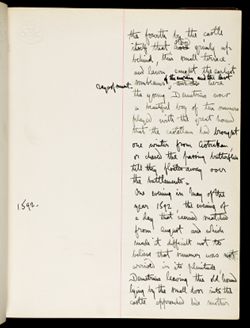 the fourth by the castle
itself that rose grimly up
behind, this small terrace
and lawn except the earliest
of the evening and the last
ray of sunset.
sunbeams, were
the young Demetrius now
a beautiful boy of ten summers
played with the great hound
that the castellan had brought
one winter from Astrakan,
or chased the passing butterflies
till they floated away over
the battlements.
One evening in May of the
year 1592 the evening of
1592.
a day that seemed snatched
from August and which
made it difficult not to
believe that summer was not
arrived in its plenitude
Demetrius leaving the old hound
lying by the small door into the
castle approached his mother